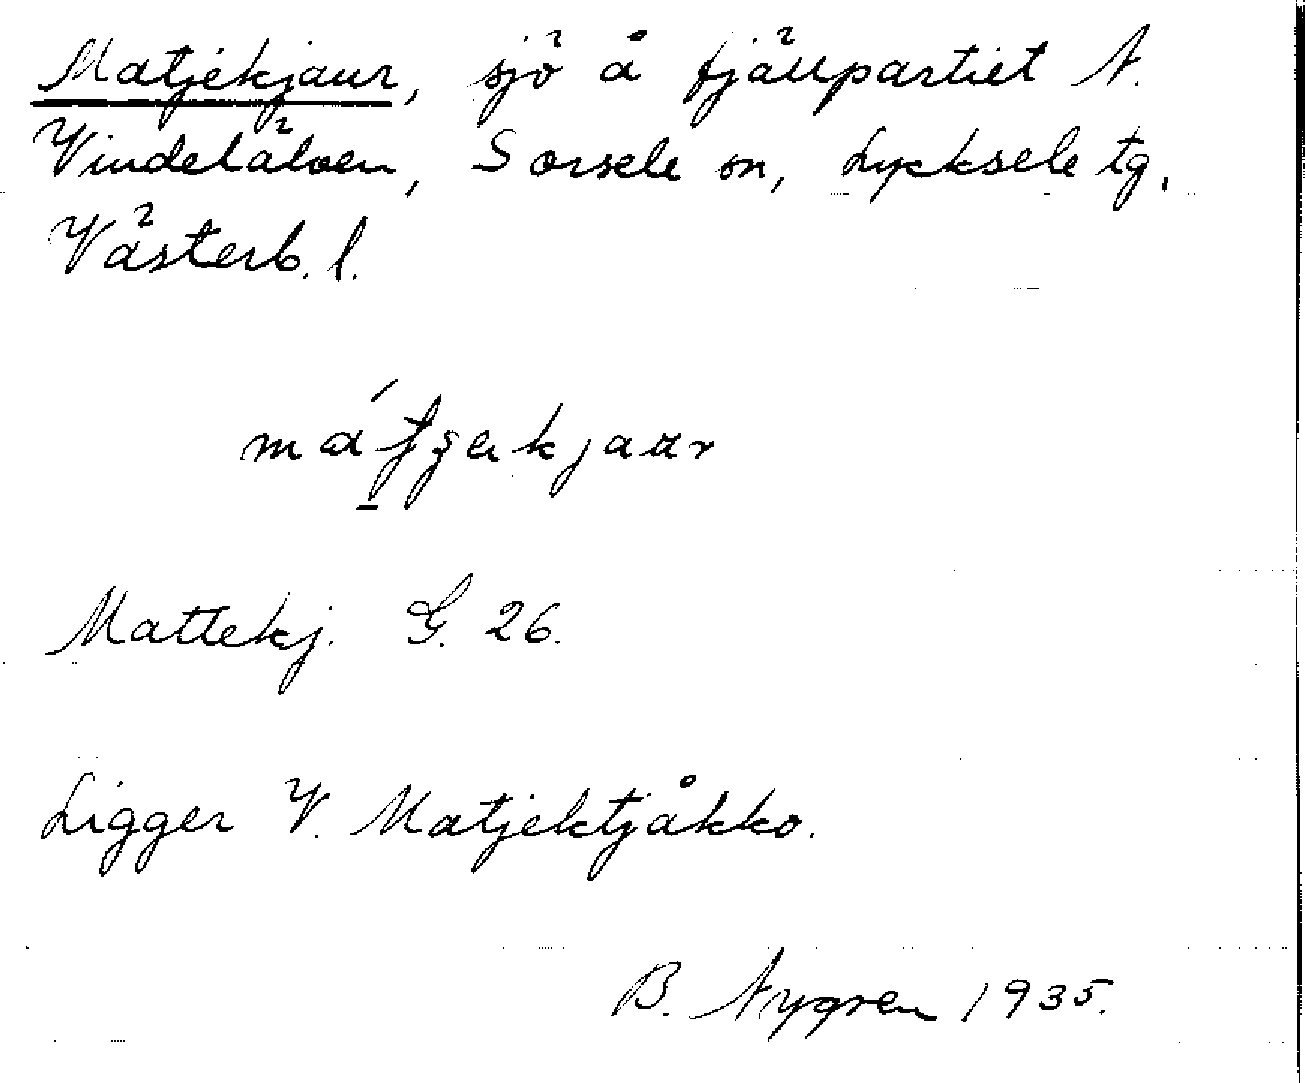 Matjekjaur, sjö å fjällpartiet N.
Vindelälven, Sorsele sn, Lycksele tg.
Västerb. l.
Mattekj. G. 26.
Ligger V. Matjektjåkko.
B. Nygren 1935.